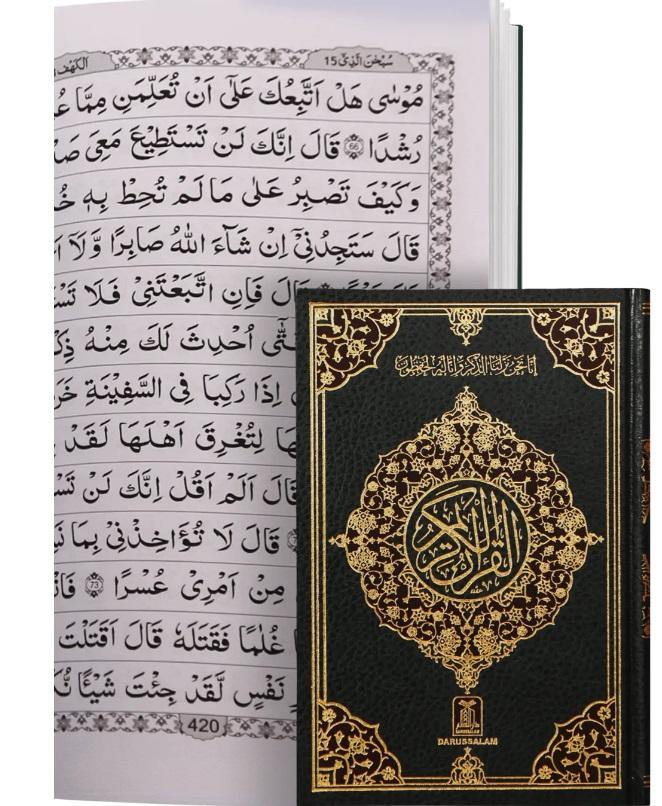 سُبْحٰنَ الَّذِىْٓ 15
اَلْكَهْف
مُوْسٰى هَلْ اَتَّبِعُكَ عَلٰٓى اَنْ تُعَلِّمَنِ مِمَّا
رُشْدًا ﴿66﴾ قَالَ اِنَّكَ لَنْ تَسْتَطِيْعَ مَعِىَ
وَكَيْفَ تَصْبِرُ عَلٰى مَا لَمْ تُحِطْ بِهٖ
قَالَ سَتَجِدُنِىْٓ اِنْ شَآءَ اللّٰهُ صَابِرًا وَّلَآ
فَاِنِ اتَّبَعْتَنِىْ فَلَا
اُحْدِثَ لَكَ مِنْهُ
اِذَا رَكِبَا فِى السَّفِيْنَةِ
لِتُغْرِقَ اَهْلَهَا لَقَدْ
قَالَ اَلَمْ اَقُلْ اِنَّكَ لَنْ
قَالَ لَا تُؤَاخِذْنِىْ بِمَا
مِنْ اَمْرِىْ عُسْرًا ﴿73﴾
غُلٰمًا فَقَتَلَهٗ قَالَ اَقَتَلْتَ
نَفْسٍ لَقَدْ جِئْتَ شَيْـًٔا
420
إنا نحن نزلنا الذكر وإنا له لحافظون
القرآن الكريم
دار السلام
DARUSSALAM